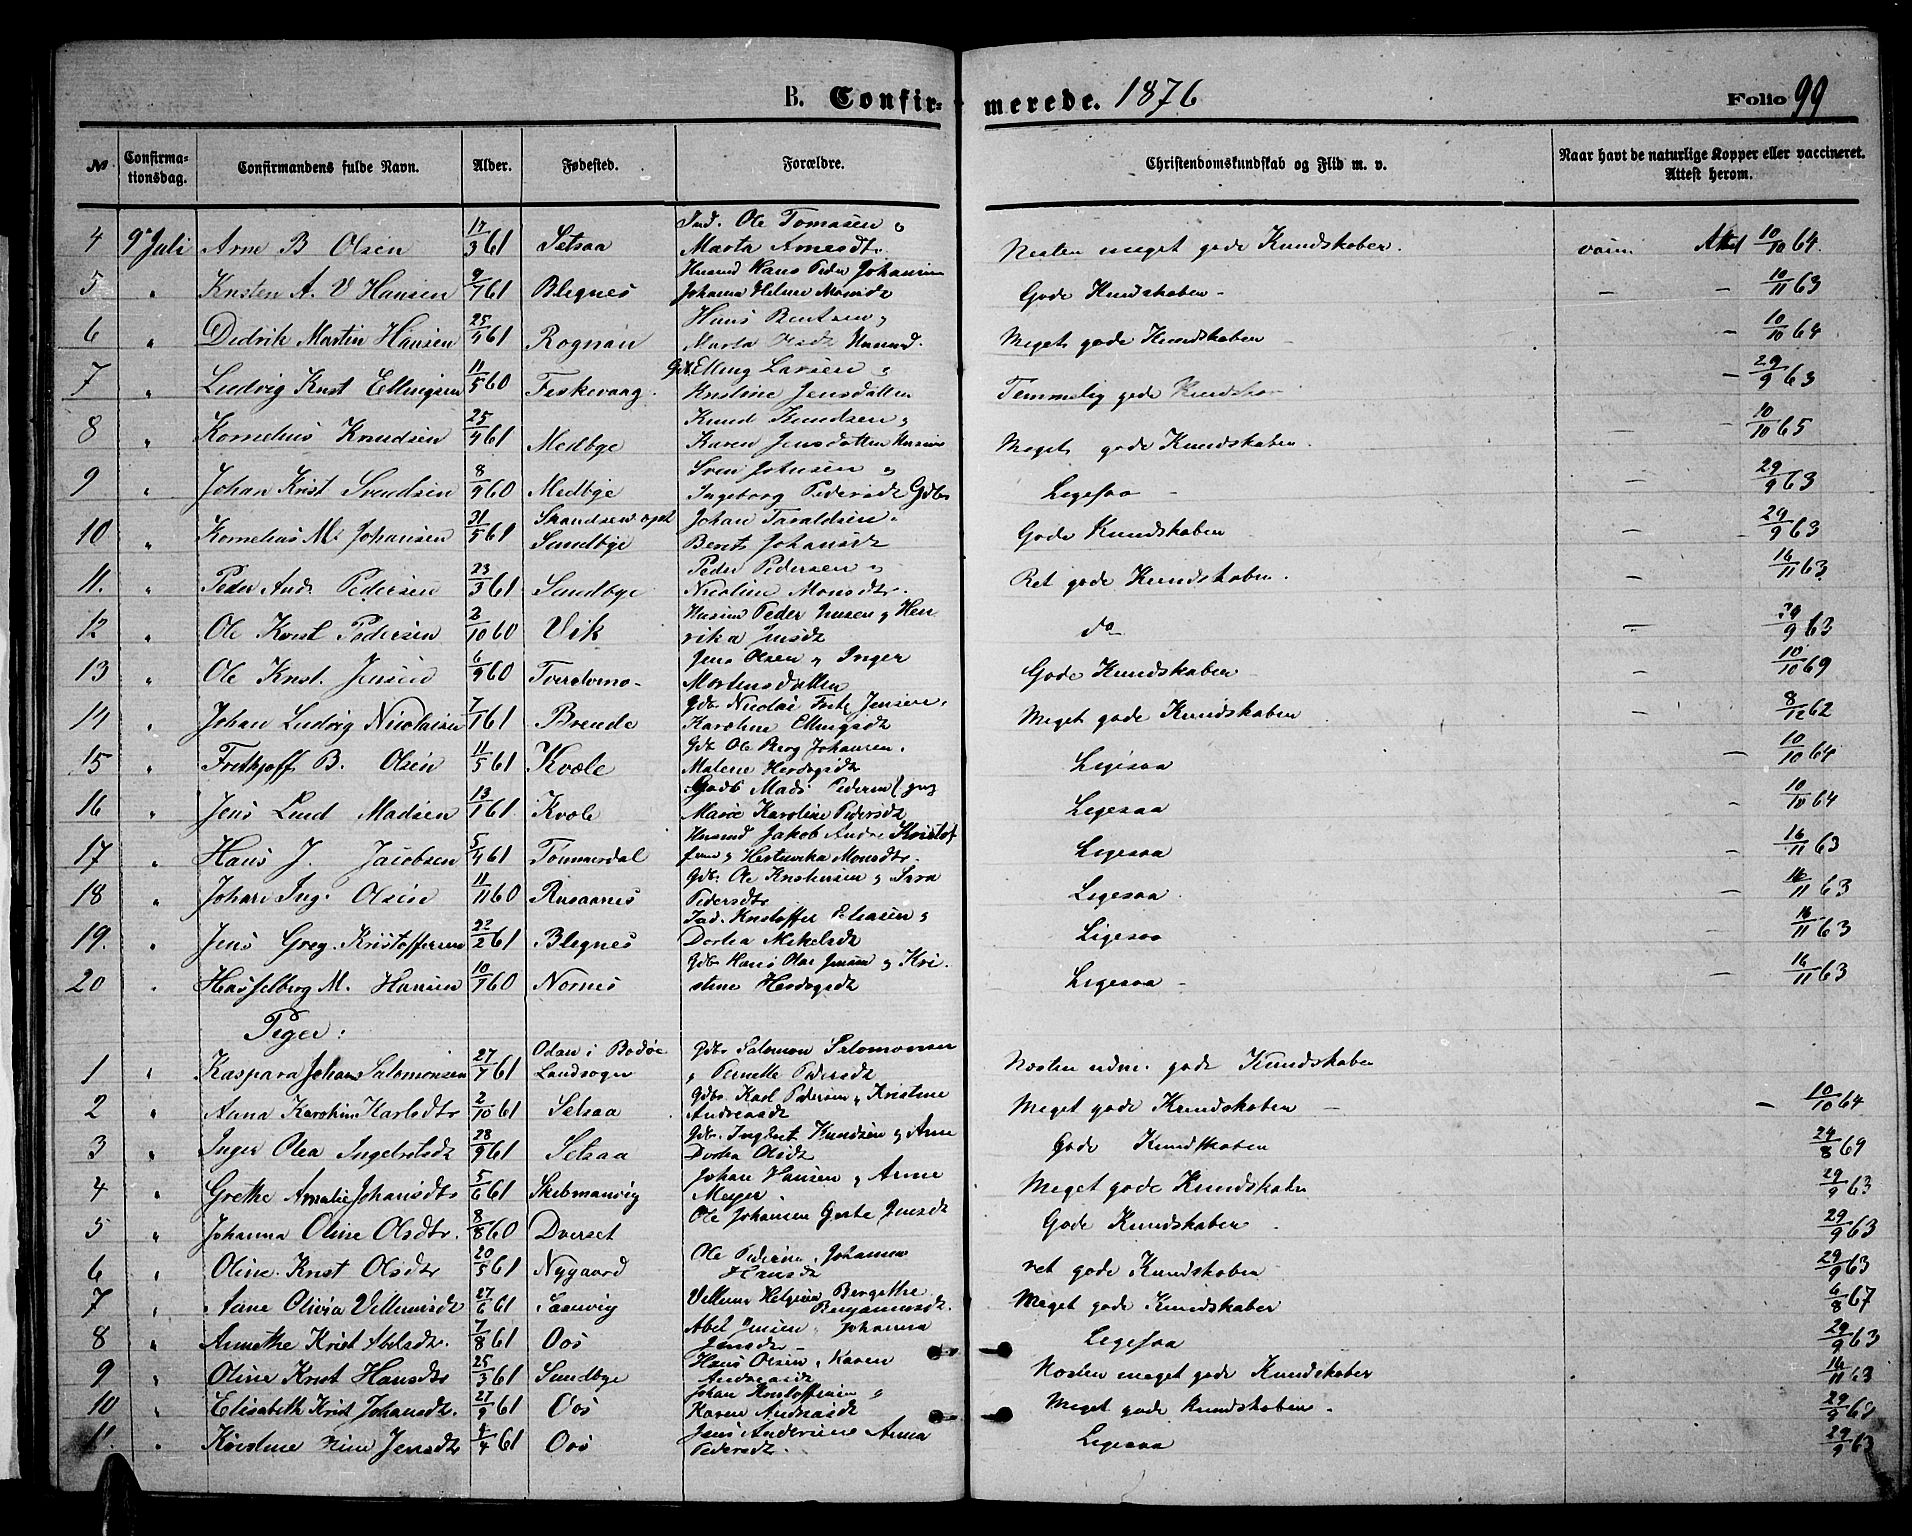 B. Confirmerede. 1876 Folio 99
No Confirmationsdag. Confirmandens fulde Navn. Alder. Fødested. Forældre. Christendomskundskab og Flid m. v. Naar havt de naturlige Kopper eller vaccineret. Attest herom.
4 9de Juli Arne B Olsen 17/3 61 Setsaa Ind. Ole Tomasen og Marta Arnesdtr. Nesten meget gode Kundskaber. vaccin. Attest 10/10 64
5 " Kristen A. V Hansen 9/1 61 Blegnes Husmd Hans Peder Johansen Johanna Helene Monsdtr Gode Kundskaber - - - 10/11 63
6 " Didrik Martin Hansen 25/4 61 Rognan Hans Bentsen og Marta Olsdtr Husmd. Meget gode Kundskaber - - 10/10 64
7 " Ludvig Krist Ellingsen 11/5 60 Feskevaag. Gdb. Elling Larsen og Kristine Jensdatter Temmelig gode Kundska - 29/9 63
8 " Kornelius Knudsen 25/4 61 Medbye Knud Knudsen og Karen Jensdatter Meget gode Kundskaber. - - 10/10 65
9 " Johan Krist Svendsen 8/9 60 Medbye Sven Johnsen og Ingeborg Pedersdtr Gdbr Ligesaa - - - 29/9 63
10 " Kornelius M. Johansen 31/5 61 Sandbye Johan Taraldsen. Berit Johansdtr Gode Kundskaber - - 29/9 63
11. " Peder Andr Pedersen 23/3 61 Sandbye Peder Pedersen og Nicoline Monsdtr. Ret gode Kundskaber. - 16/11 63
12 " Ole Krist Pedersen 2/10 60 Vik Husm Peder Jensen og Henrika Jensdtr do - 29/9 63
13 " Ole Krist. Jensen 6/9 60 Tverdvemo. Jens Olsen og Inger Mortensdatter Gode Kundskaber - 10/10 69
14 " Johan Ludvig Nicolaisen 7/1 61 Brende Gdb. Nicolai Fritz Jensen. Karoline Ellingsdtr Meget gode Kundskaber - 8/12 62
15 " Frithjoff B. Olsen 11/5 61 Kvæle Gdb Ole Berg Johansen. Malene Hersdogsdtr Ligesaa - 10/10 64
16 " Jens Lund Madsen 13/1 61. Kvæle Gdb Mads Pedersen og Marie Karoline Pedersdtr Ligesaa - 10/10 64
17 " Hans J. Jacobsen 5/4 61 Tonnerdal Husmd Jakob Andr Kristoffersen og Monsdtr. Ligesaa - 16/11 63
18 " Johan Ing. Olsen 11/11 60 Rusaanes Gdb. Ole Kristensen og Sara Pedersdtr Ligesaa. - 16/11 63
19. " Jens Greg. Kristoffersen 22/2 61 Blegnes Ind. Kristoffer Eliasen og Dortea Mikelsdtr Ligesaa - 16/11 63
20 " Hasselberg M. Hansen 10/1 60 Nornes Gdb Hans Olai Jensen og Kristine Hersdogsdtr Ligesaa - - 16/11 63
Piger:
1 " Kaspara Johan Salomonsen 27/7 61 i Bodøe Landsogn Gdb Salomon Salomonsen og Pernille Pedersdtr Nesten udm. gode Kundskaber
2 " Anna Karoline Karlsdtr 2/10 61 Setsaa Gdb. Karl Pedersen og Kristine Andreasdtr Meget gode Kundskaber - - 10/10 64
3 " Inger Olea Ingebrtsdtr 28/9 61 Setsaa Gdb. Ingebrt Knudsen og Anne Dortea Olsdtr Gode Kundskaber 24/8 69
4 " Grethe Amalie Johansdtr 5/6 61 Skibmanvig Johan Hansen og Anne Meyer Meget gode Kundskaber 29/9 63
5 " Johanna Oline Olsdtr. 8/8 60 Dverset Ole Johansen Jensdtr Gode Kundskaber - 29/9 63
6 " Oline Krist Olsdtr 20/5 61 Nygaard Ole Pedersen, Johanna Hansdtr ret gode Kundskaber 29/9 63
7 " Anne Olivia Vellumsdtr 27/6 61 Saanvig Vellum Helgesen Bergethe Benjaminsdtr Meget gode Kundskaber 6/8 67
8 " Annethe Krist Abelsdtr. 7/8 61 Oos Abel Jensen, Johanna Jensdtr - Ligesaa 29/9 63
9 " Oline Krist Hansdtr 25/3 61 Sandbye Hans Olsen, Karen Andreasdtr Nesten meget gode Kundskaber 16/11 63
10 " Elisabeth Krist Johansdtr. 27/9 61 Oos Johan Kristoffersen og Karen Andreasdtr Meget gode Kundskaber. 29/9 62
11. " Kristine Jensdtr 1/4 61 Oos Jens Andersen Anna Pedersdtr. Ligesaa 29/9 63